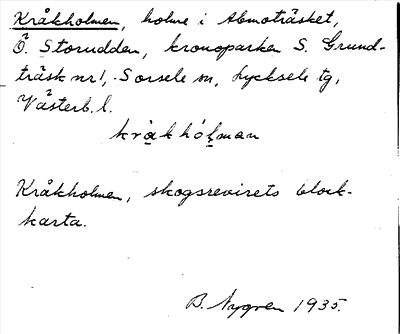 Kråkholmen, holme i Abmoträsket,
Ö. Storudden, kronoparken S. Grund-
träsk nr 1, Sorsele sn, Lycksele tg,
Västerb. l.
kråkhólman
Kråkholmen, skogsrevirets block-
karta.
B. Nygren 1935.